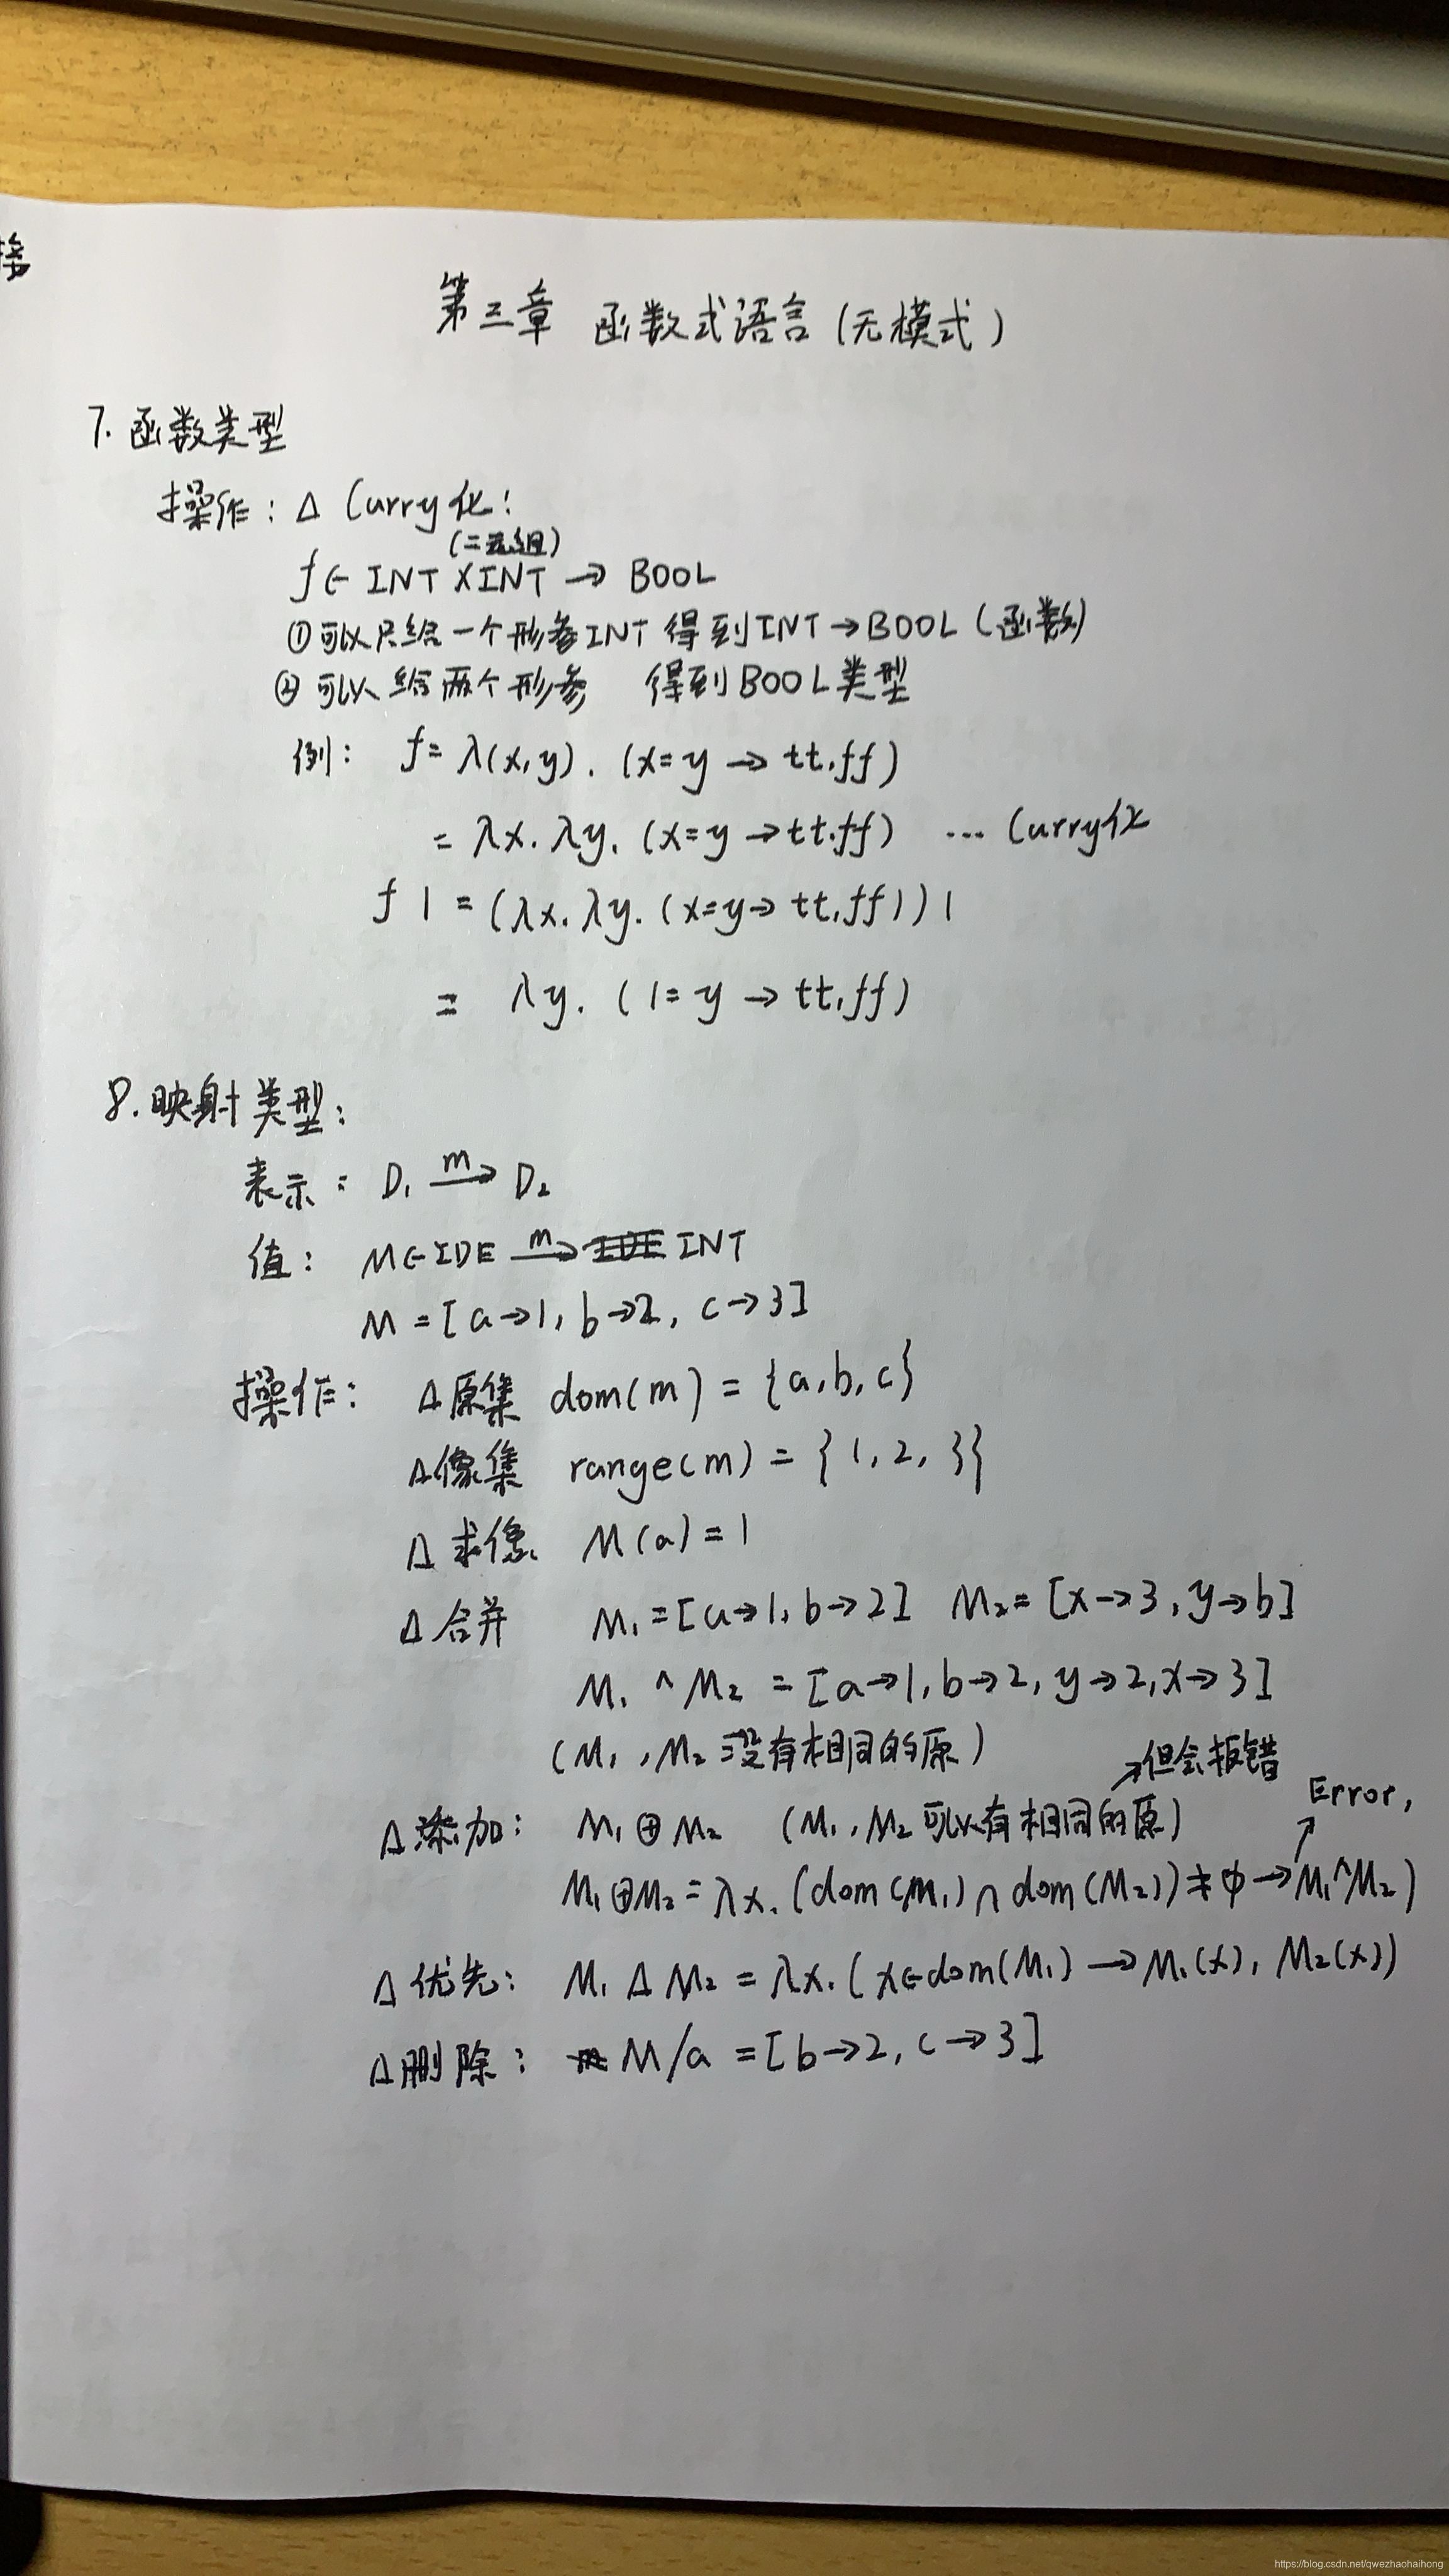 接
第三章 函数式语言(无模式)
7. 函数类型
操作: Δ Curry化:
(二元组)
f∈ INT ×INT → BOOL
①可以只给一个形参INT 得到INT→BOOL(函数)
②可以给两个形参 得到BOOL类型
例: f= λ(x,y). (x=y → tt,ff)
= λx. λy. (x=y →tt,ff) ... Curry化
f 1 = (λx. λy. (x=y→ tt,ff)) 1
= λy. (1=y → tt,ff)
8. 映射类型:
表示: D₁ →ᵐ D₂
值: M∈IDE →ᵐ INT
M = [a→1, b→2, c→3]
操作: Δ原集 dom(m) = {a,b,c}
Δ像集 range(m) = {1,2,3}
Δ求像 M(a)=1
Δ合并 M₁=[a→1, b→2] M₂=[x→3, y→b]
M₁ ^ M₂ = [a→1, b→2, y→2, x→3]
(M₁, M₂ 没有相同的原)
↗但会报错
Δ添加: M₁⊕M₂ (M₁, M₂ 可以有相同的原)
Error,
M₁⊕M₂ = λx. (dom(M₁)∩dom(M₂)) ≠ φ → M₁^M₂)
Δ优先: M₁ Δ M₂ = λx. (x∈dom(M₁) → M₁(x), M₂(x))
Δ删除: M/a = [b→2, c→3]
https://blog.csdn.net/qwezhaohaihong